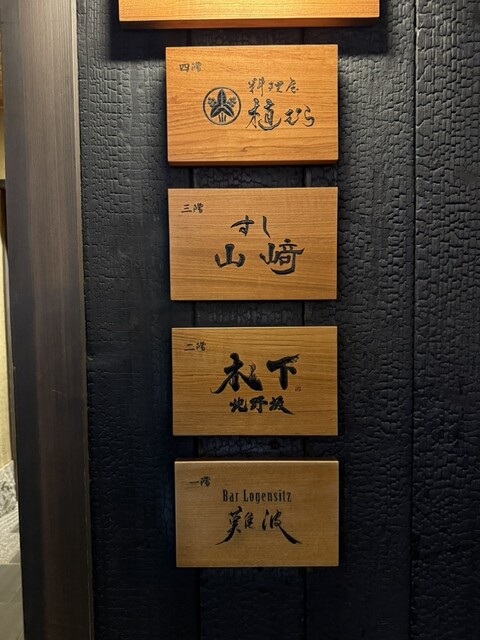 四階
料理屋
植むら
三階
すし
山﨑
二階
木下
北野坂
一階
Bar Logensitz
難波